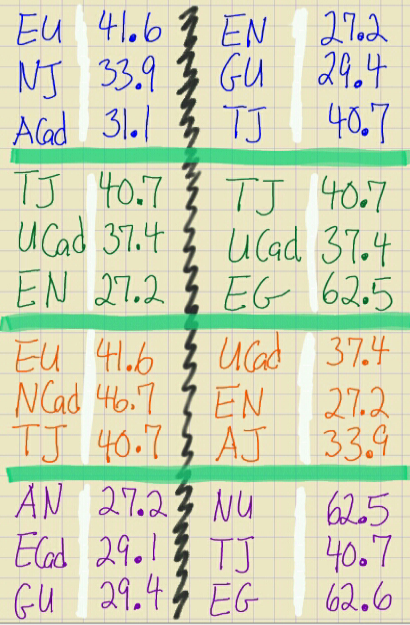 EU 41.6 EN 27.2
NJ 33.9 GU 29.4
ACad 31.1 TJ 40.7
TJ 40.7 TJ 40.7
UCad 37.4 UCad 37.4
EN 27.2 EG 62.5
EU 41.6 UCad 37.4
NCad 46.7 EN 27.2
TJ 40.7 AJ 33.9
AN 27.2 NU 62.5
ECad 29.1 TJ 40.7
GU 29.4 EG 62.6